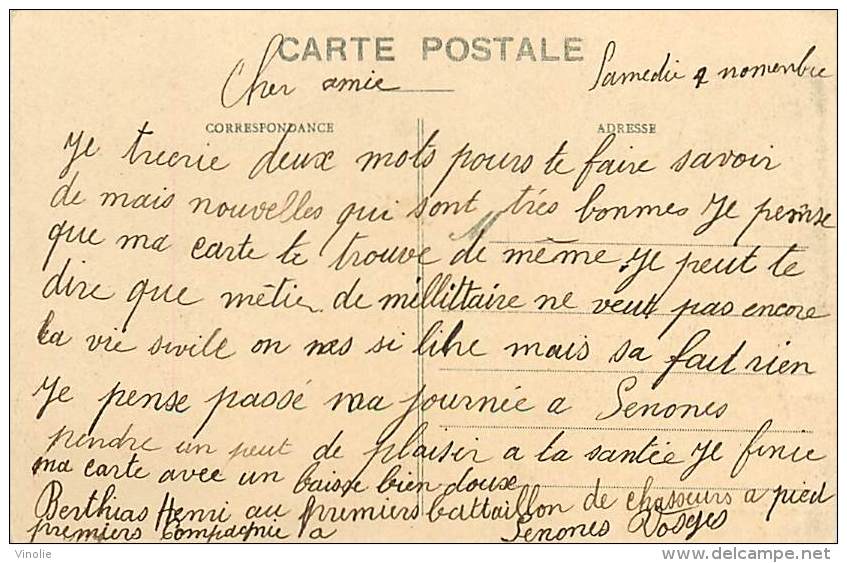 CARTE POSTALE
Cher amie
Samedie 4 nomenbre
CORRESPONDANCE
ADRESSE
Je trecrie deux mots pours te faire savoir
de mais nouvelles qui sont trés bonmes Je pennse
que ma carte te trouve de même Je peut te
dire que métier de millittaire ne veut pas encore
la vie sivile on nes si libre mais sa fait rien
Je pense passé ma journée a Senones
prendre un peut de plaisir a la santée Je finie
ma carte avec un baisse bien douxe
Berthias Henri au premiers battaillon de chasseurs a pied
premiers Compagnie a Senones Vosges
Vinolie
http://www.delcampe.net